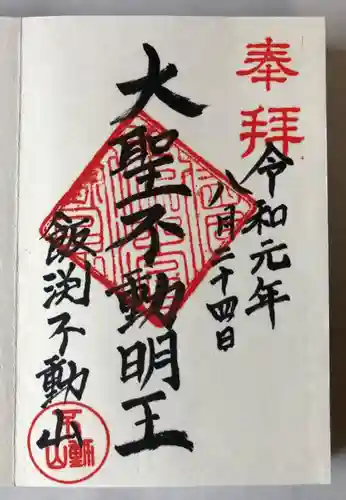 奉拝
令和元年
八月二十四日
大聖不動明王
飯渕不動山